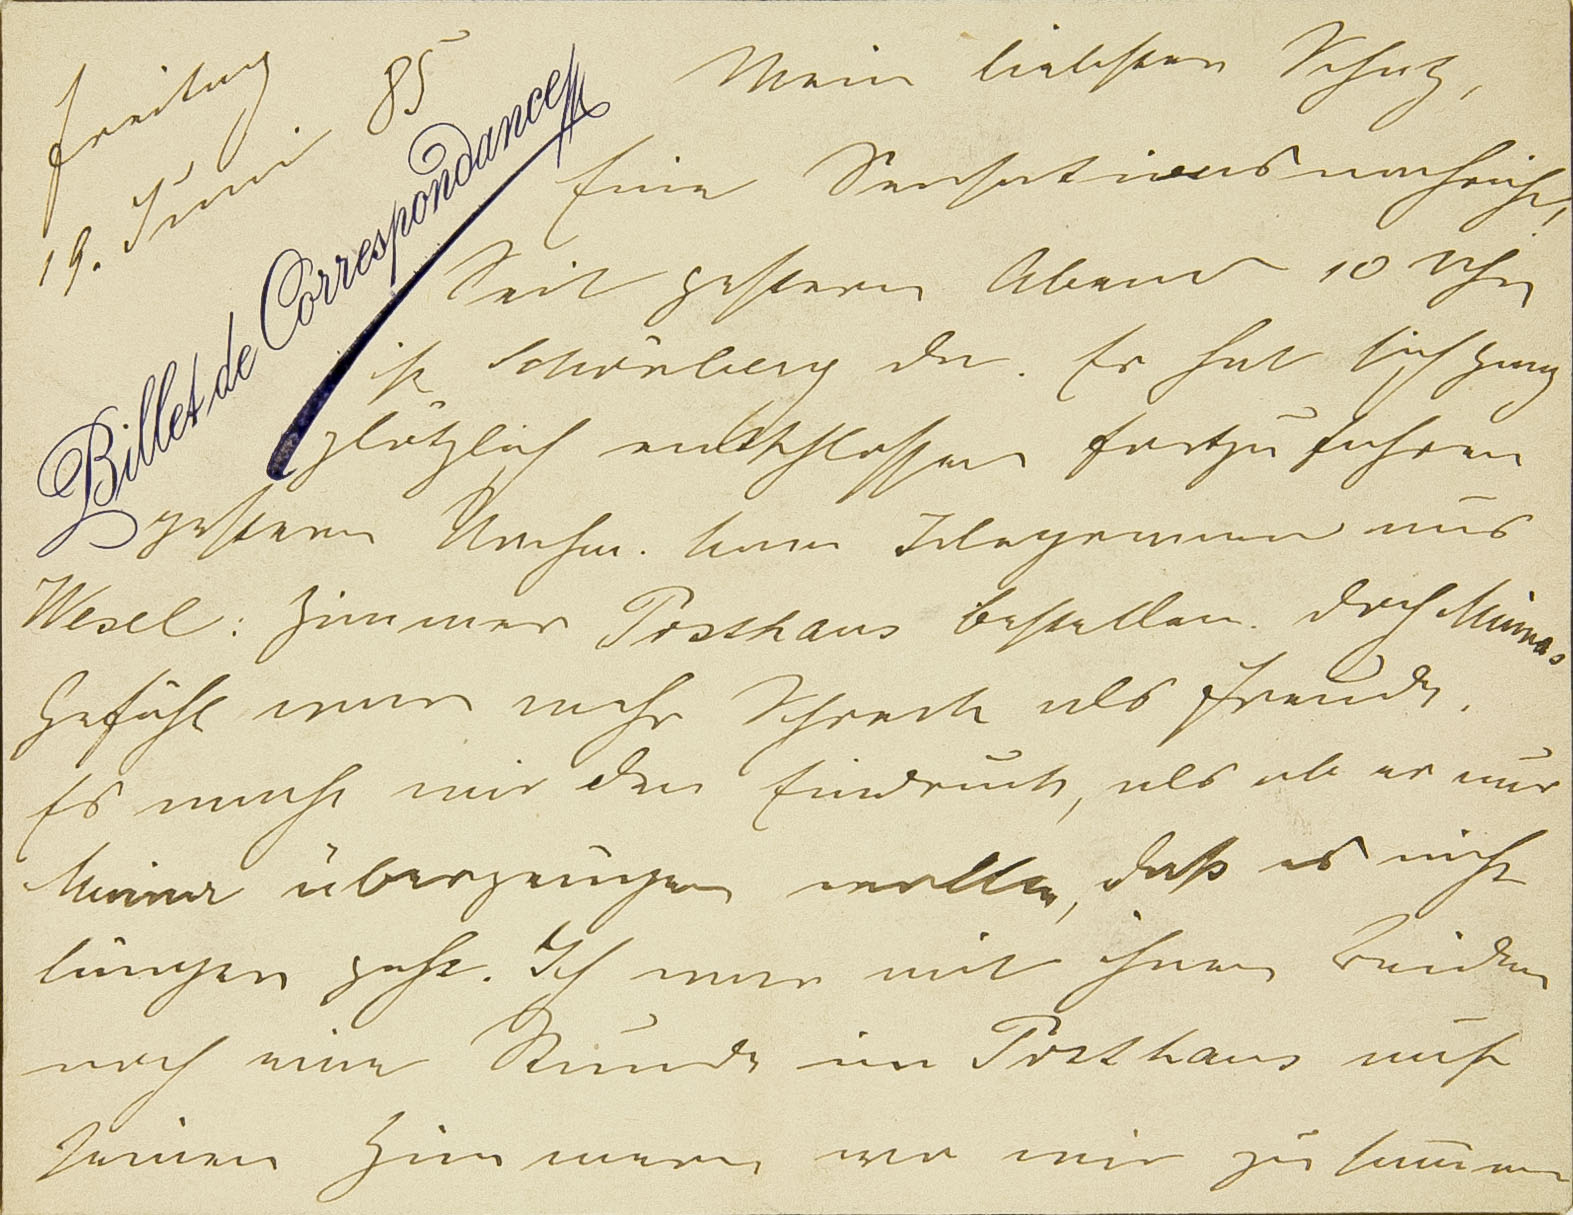 Freitag
19. Juni 85
Billet de Correspondance
Mein liebster Schatz,
Eine Sensationsnachricht,
Seit gestern Abend 10 Uhr
ist Schönberg da. Er hat sich ganz
plötzlich entschlossen fortzufahren
gestern Nachm. kam Telegramm aus
Wesel: Zimmer Posthaus bestellen. Doch Minnas
Gefühl war mehr Schreck als Freude.
Es macht mir den Eindruck, als ob er nur
Minna überzeugen wollte, daß es nicht
länger geht. Ich war mit ihnen Beiden
noch eine Stunde im Posthaus auf
seinem Zimmer, wo wir zusammen